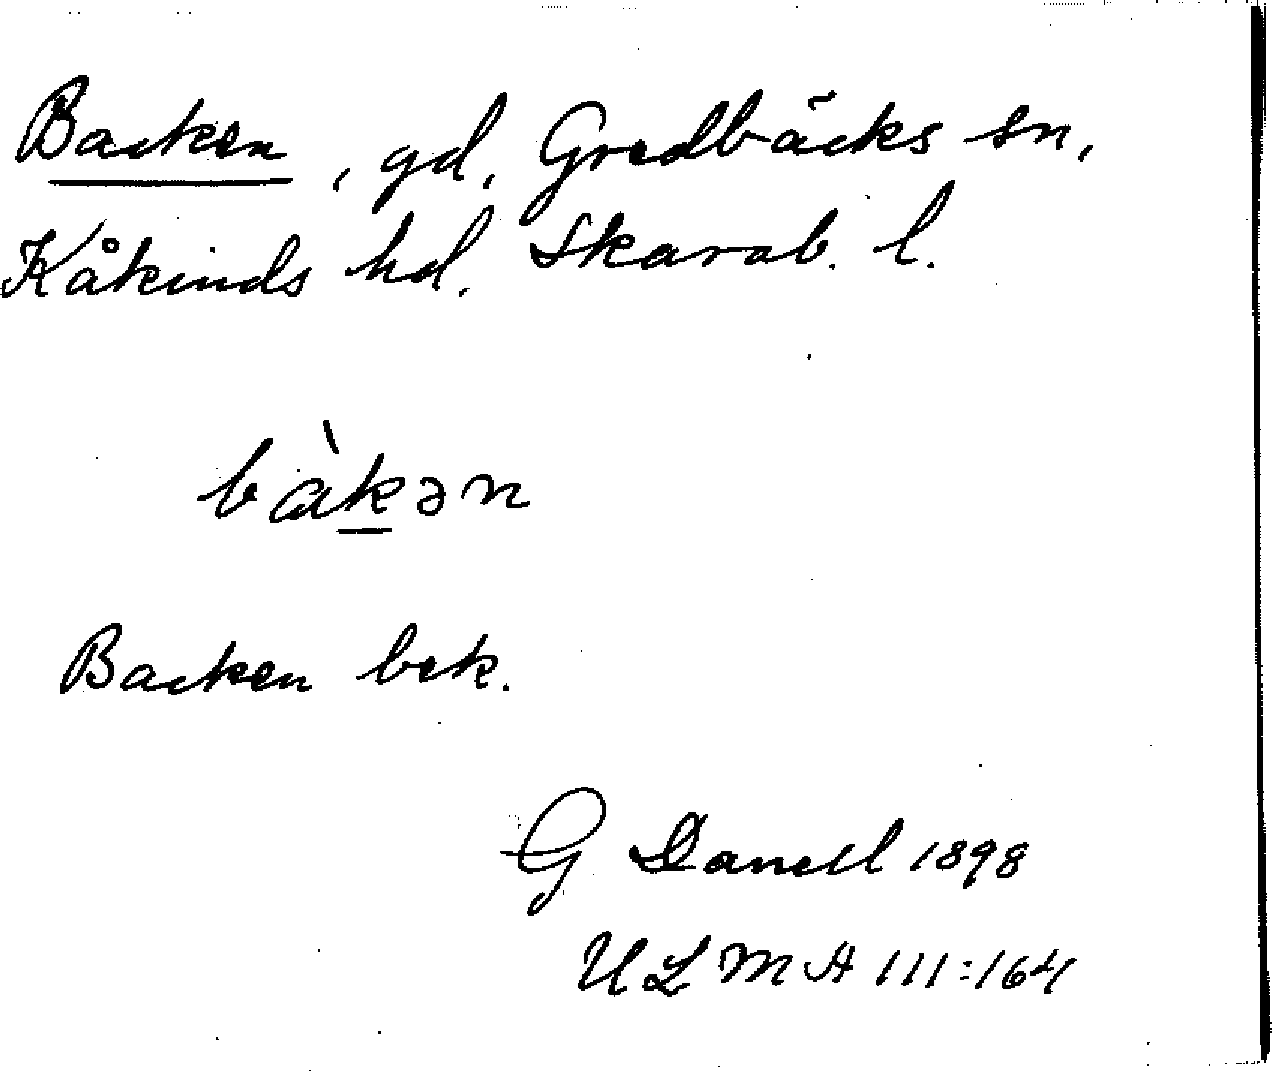 Backen, gd, Gredbäcks sn,
Kåkinds hd. Skarab. l.
bàkən
Backen bek.
G Danell 1898
ULMA 111:164